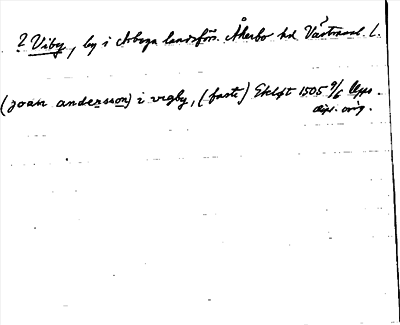 ? Viby, by i Arboga landsförs. Åkerbo hd Västmanl. l.
(joan andersson) i vegby, (faste) Ekloft 1505 9/6 Upps.
dipl. orig.